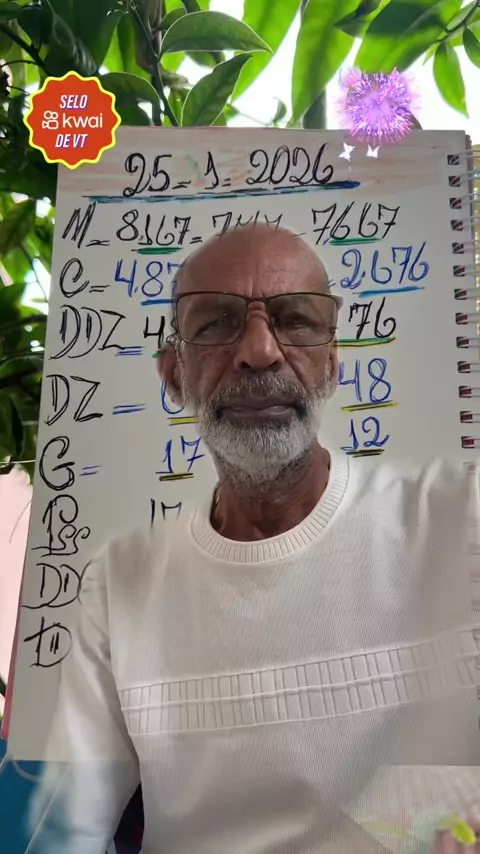 SELO
kwai
DE VT
25-1-2026
M= 8167= 7667
C= 2,676
DDZ= 76
DZ = 48
G= 17 12
Pss 17
DD